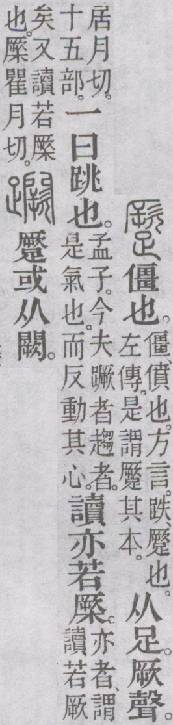 蹶僵也。僵、僨也。方言。跌、蹷也。左傳。是謂蹷其本。从足。厥聲。
居月切。十五部。一曰跳也。孟子。今夫蹶者趨者。是氣也。而反動其心。讀亦若橜。亦者、謂讀若厥
矣。又讀若橜也。橜瞿月切。𨇮蹷或从闕。